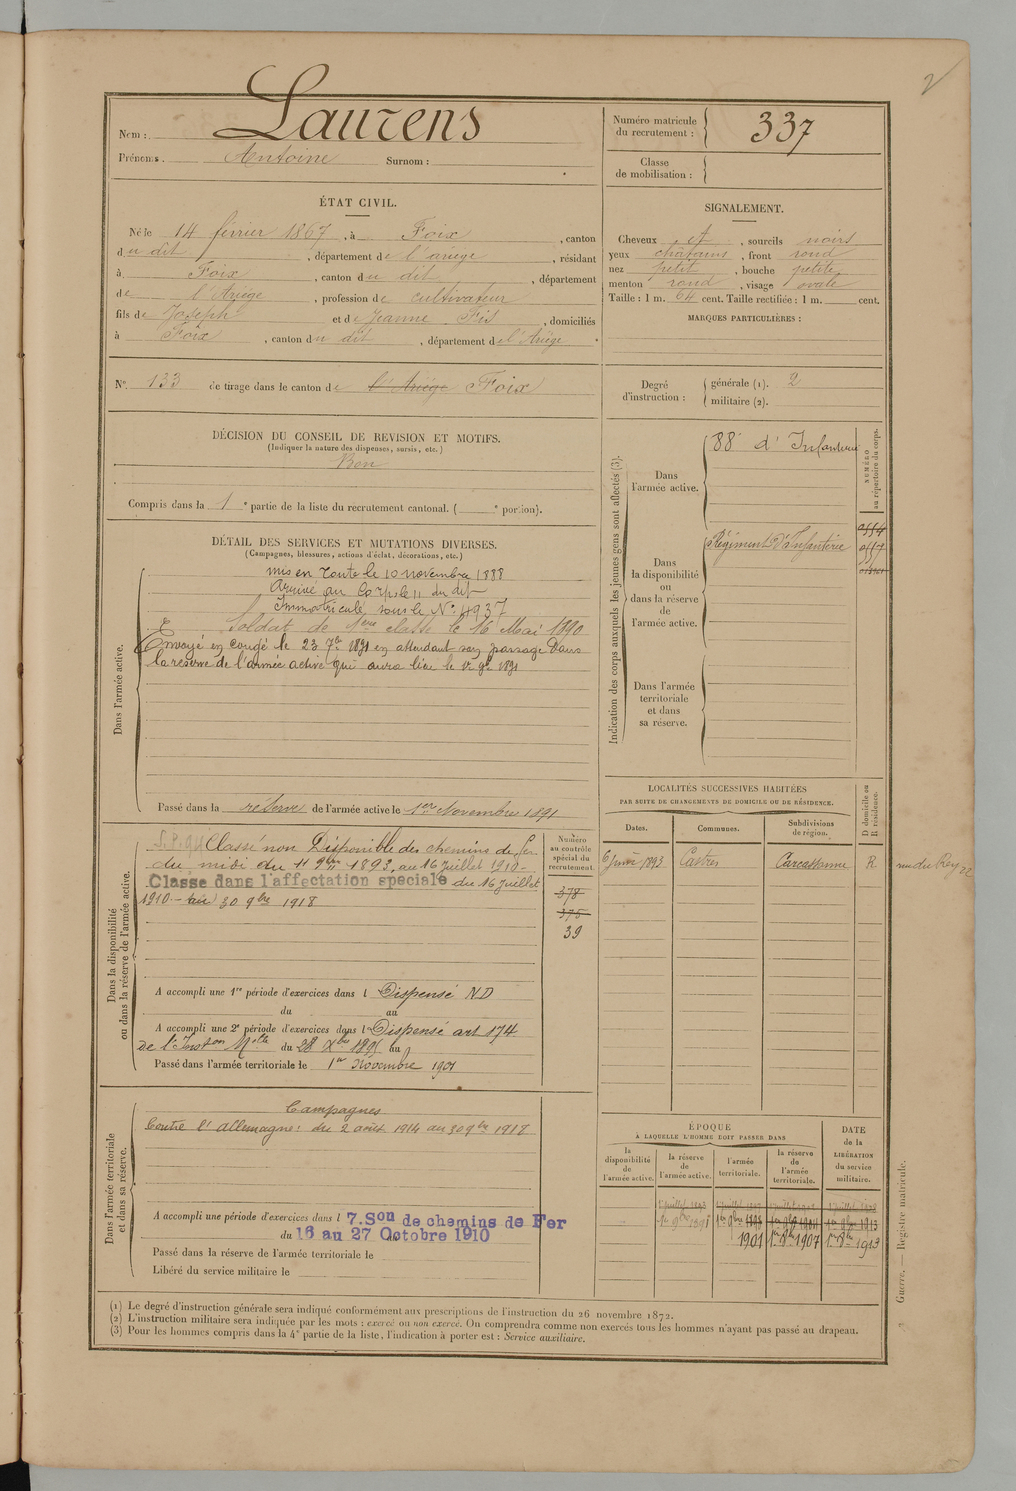 2
Nom : Laurens
Prénoms. Antoine Surnom :
Numéro matricule du recrutement : 337
Classe de mobilisation :
ÉTAT CIVIL.
Né le 14 février 1867, à Foix, canton
du dit, département de l'ariège, résidant
à Foix, canton du dit, département
de l'Ariège, profession de cultivateur
fils de Joseph et de Jeanne Fis, domiciliés
à Foix, canton du dit, département de l'Ariège.
SIGNALEMENT.
Cheveux et, sourcils noirs
yeux châtains, front rond
nez petit, bouche petite
menton rond, visage ovale
Taille : 1 m. 64 cent. Taille rectifiée : 1 m. cent.
MARQUES PARTICULIÈRES :
N° 133 de tirage dans le canton de l'Ariège Foix
Degré d'instruction : générale (1). 2
militaire (2).
DÉCISION DU CONSEIL DE REVISION ET MOTIFS.
(Indiquer la nature des dispenses, sursis, etc.)
Bon
Compris dans la 1e partie de la liste du recrutement cantonal. ( e portion).
DÉTAIL DES SERVICES ET MUTATIONS DIVERSES.
(Campagnes, blessures, actions d'éclat, décorations, etc.)
Dans l'armée active.
mis en route le 10 novembre 1888
Arrivé au Corps le 11 du dit
Immatriculé sous le N° 4937
Soldat de 1ere classe le 16 Mai 1890
Envoyé en congé le 23 7bre 1891 en attendant son passage dans
la réserve de l'armée active qui aura lieu le 1er 9bre 1891
Passé dans la réserve de l'armée active le 1er Novembre 1891
Indication des corps auxquels les jeunes gens sont affectés (3).
NUMÉRO au répertoire du corps.
Dans l'armée active.
88e d'Infanterie
Dans la disponibilité ou dans la réserve de l'armée active.
Régiment d'Infanterie
Dans l'armée territoriale et dans sa réserve.
LOCALITÉS SUCCESSIVES HABITÉES
PAR SUITE DE CHANGEMENTS DE DOMICILE OU DE RÉSIDENCE.
Dates. Communes. Subdivisions de région. D domicile ou R résidence.
6 Juin 1893 Castres Carcassonne R rue du Rey 22
Dans la disponibilité ou dans la réserve de l'armée active.
Numéro au contrôle spécial du recrutement.
Classé non Disponible des chemins de fer
du midi du 11 9bre 1893, au 16 Juillet 1910 -
Classe dans l'affectation speciale du 16 Juillet
1910 - au 30 9bre 1918
378
375
39
A accompli une 1re période d'exercices dans l Dispensé ND
du au
A accompli une 2e période d'exercices dans l Dispensé art 174
de l'Inston Mlle du 28 Xbre 1895 au
Passé dans l'armée territoriale le 1er Novembre 1901
Dans l'armée territoriale et dans sa réserve.
Campagnes
Contre l'allemagne : du 2 août 1914 au 30 9bre 1918
A accompli une période d'exercices dans l 7. Son de chemins de Fer
du 16 au 27 Octobre 1910
Passé dans la réserve de l'armée territoriale le
Libéré du service militaire le
ÉPOQUE
À LAQUELLE L'HOMME DOIT PASSER DANS
la disponibilité de l'armée active.
la réserve de l'armée active.
l'armée territoriale.
la réserve de l'armée territoriale.
DATE de la LIBÉRATION du service militaire.
1901 1er 9bre 1907 1er 8bre 1913
(1) Le degré d'instruction générale sera indiqué conformément aux prescriptions de l'instruction du 26 novembre 1872.
(2) L'instruction militaire sera indiquée par les mots : exercé ou non exercé. On comprendra comme non exercés tous les hommes n'ayant pas passé au drapeau.
(3) Pour les hommes compris dans la 4e partie de la liste, l'indication à porter est : Service auxiliaire.
Guerre. — Registre matricule.